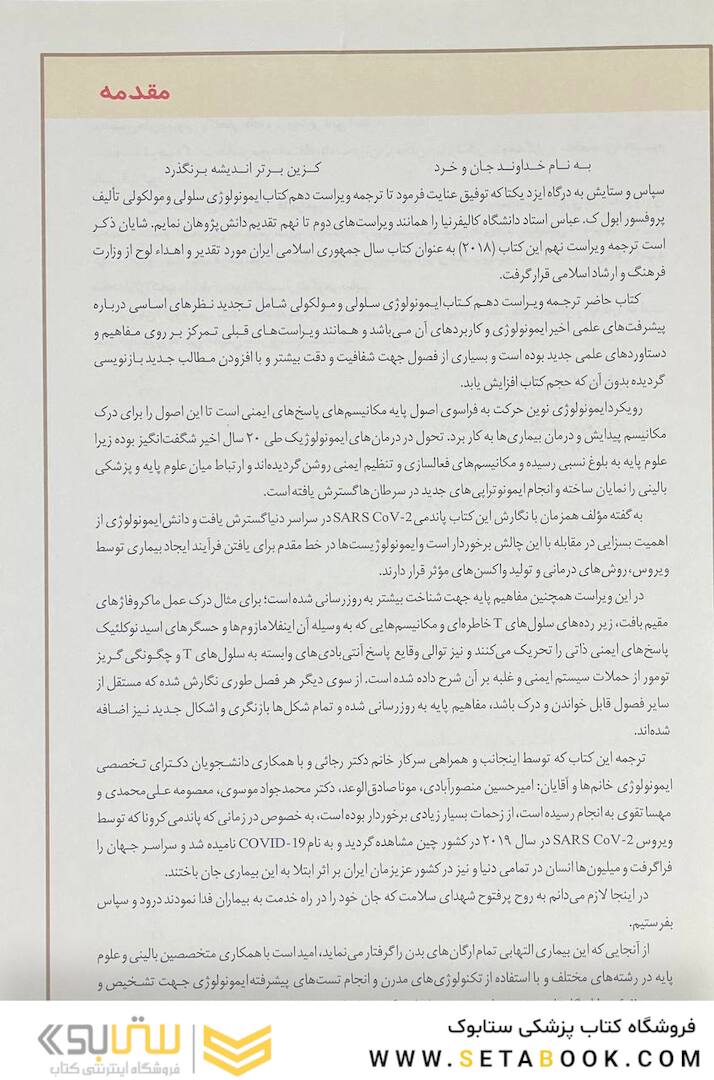 مقدمه
به نام خداوند جان و خرد کزین برتر اندیشه برنگذرد
سپاس و ستایش به درگاه ایزد یکتا که توفیق عنایت فرمود تا ترجمه ویراست دهم کتاب ایمونولوژی سلولی و مولکولی تألیف
پروفسور ابول ک. عباس استاد دانشگاه کالیفرنیا را همانند ویراست‌های دوم تا نهم تقدیم دانش‌پژوهان نمایم. شایان ذکر
است ترجمه ویراست نهم این کتاب (۲۰۱۸) به عنوان کتاب سال جمهوری اسلامی ایران مورد تقدیر و اهداء لوح از وزارت
فرهنگ و ارشاد اسلامی قرار گرفت.
کتاب حاضر ترجمه ویراست دهم کتاب ایمونولوژی سلولی و مولکولی شامل تجدید نظرهای اساسی درباره
پیشرفت‌های علمی اخیر ایمونولوژی و کاربردهای آن می‌باشد و همانند ویراست‌های قبلی تمرکز بر روی مفاهیم و
دستاوردهای علمی جدید بوده است و بسیاری از فصول جهت شفافیت و دقت بیشتر و با افزودن مطالب جدید بازنویسی
گردیده بدون آن که حجم کتاب افزایش یابد.
رویکرد ایمونولوژی نوین حرکت به فراسوی اصول پایه مکانیسم‌های پاسخ‌های ایمنی است تا این اصول را برای درک
مکانیسم پیدایش و درمان بیماری‌ها به کار برد. تحول در درمان‌های ایمونولوژیک طی ۲۰ سال اخیر شگفت‌انگیز بوده زیرا
علوم پایه به بلوغ نسبی رسیده و مکانیسم‌های فعالسازی و تنظیم ایمنی روشن گردیده‌اند و ارتباط میان علوم پایه و پزشکی
بالینی را نمایان ساخته و انجام ایمونوتراپی‌های جدید در سرطان‌ها گسترش یافته است.
به گفته مؤلف همزمان با نگارش این کتاب پاندمی SARS CoV-2 در سراسر دنیا گسترش یافت و دانش ایمونولوژی از
اهمیت بسزایی در مقابله با این چالش برخوردار است و ایمونولوژیست‌ها در خط مقدم برای یافتن فرآیند ایجاد بیماری توسط
ویروس، روش‌های درمانی و تولید واکسن‌های مؤثر قرار دارند.
در این ویراست همچنین مفاهیم پایه جهت شناخت بیشتر به روزرسانی شده است؛ برای مثال درک عمل ماکروفاژهای
مقیم بافت، زیر رده‌های سلول‌های T خاطره‌ای و مکانیسم‌هایی که به وسیله آن اینفلامازوم‌ها و حسگرهای اسید نوکلئیک
پاسخ‌های ایمنی ذاتی را تحریک می‌کنند و نیز توالی وقایع پاسخ آنتی‌بادی‌های وابسته به سلول‌های T و چگونگی گریز
تومور از حملات سیستم ایمنی و غلبه بر آن شرح داده شده است. از سوی دیگر هر فصل طوری نگارش شده که مستقل از
سایر فصول قابل خواندن و درک باشد، مفاهیم پایه به روزرسانی شده و تمام شکل‌ها بازنگری و اشکال جدید نیز اضافه
شده‌اند.
ترجمه این کتاب که توسط اینجانب و همراهی سرکار خانم دکتر رجائی و با همکاری دانشجویان دکترای تخصصی
ایمونولوژی خانم‌ها و آقایان: امیرحسین منصورآبادی، مونا صادق‌الوعد، دکتر محمدجواد موسوی، معصومه علی‌محمدی و
مهسا تقوی به انجام رسیده است، از زحمات بسیار زیادی برخوردار بوده است، به خصوص در زمانی که پاندمی کرونا که توسط
ویروس SARS CoV-2 در سال ۲۰۱۹ در کشور چین مشاهده گردید و به نام COVID-19 نامیده شد و سراسر جهان را
فراگرفت و میلیون‌ها انسان در تمامی دنیا و نیز در کشور عزیزمان ایران بر اثر ابتلا به این بیماری جان باختند.
در اینجا لازم می‌دانم به روح پرفتوح شهدای سلامت که جان خود را در راه خدمت به بیماران فدا نمودند درود و سپاس
بفرستیم.
از آنجایی که این بیماری التهابی تمام ارگان‌های بدن را گرفتار می‌نماید، امید است با همکاری متخصصین بالینی و علوم
پایه در رشته‌های مختلف و با استفاده از تکنولوژی‌های مدرن و انجام تست‌های پیشرفته ایمونولوژی جهت تشخیص و
فروشگاه کتاب پزشکی ستابوک
WWW.SETABOOK.COM
ستابوک
فروشگاه اینترنتی کتاب